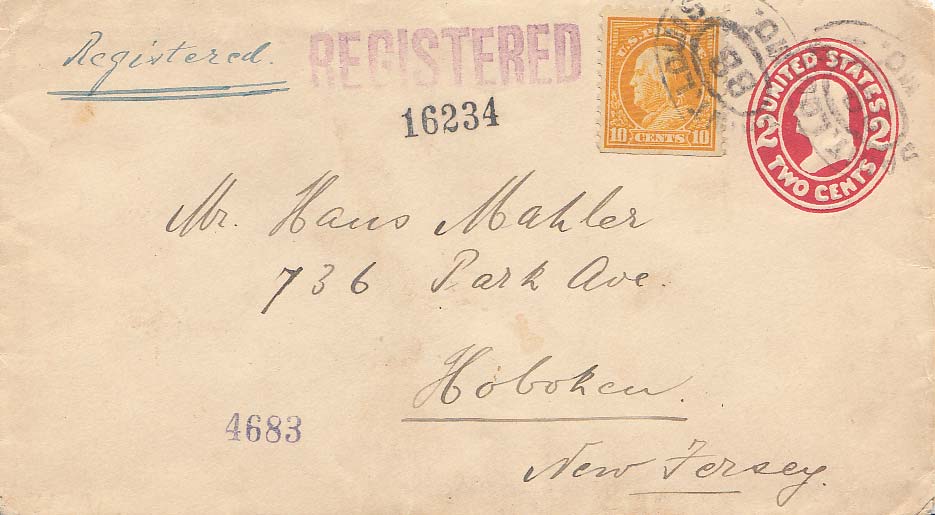 Registered.
REGISTERED
16234
U.S. POSTAGE
10 CENTS 10
UNITED STATES
2 2
TWO CENTS
Mr. Hans Mahler
736 Park Ave.
Hoboken.
New Jersey.
4683